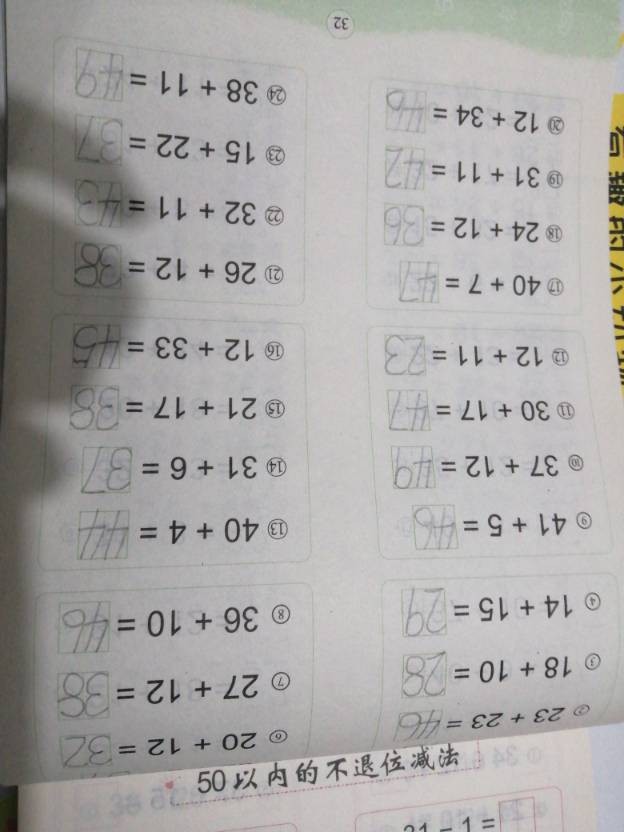 ② 23 + 23 = 46
⑥ 20 + 12 = 32
③ 18 + 10 = 28
⑦ 27 + 12 =
④ 14 + 15 = 29
⑧ 36 + 10 = 46
⑨ 41 + 5 = 46
⑬ 40 + 4 = 44
⑩ 37 + 12 = 49
⑭ 31 + 6 = 37
⑪ 30 + 17 = 47
⑮ 21 + 17 = 38
⑫ 12 + 11 = 23
⑯ 12 + 33 = 45
⑰ 40 + 7 = 47
㉑ 26 + 12 = 38
⑱ 24 + 12 = 36
㉒ 32 + 11 = 43
⑲ 31 + 11 = 42
㉓ 15 + 22 = 37
⑳ 12 + 34 = 46
㉔ 38 + 11 = 49
32
50以内的不退位减法